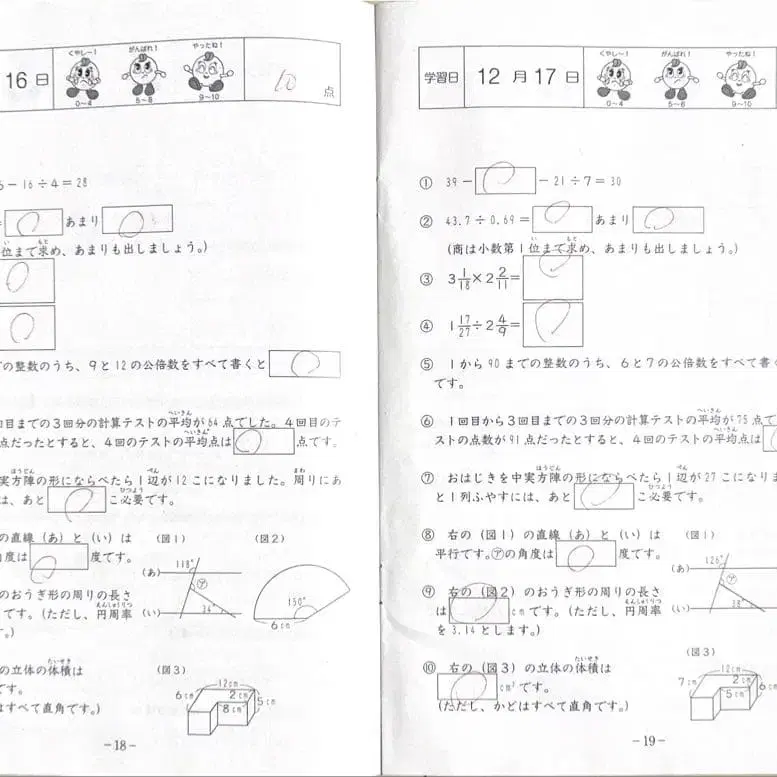 16日
くやし〜!
がんばれ!
やったね!
0〜4
5〜8
9〜10
10 点
6－16÷4＝28
＝ あまり
位まで求め、あまりも出しましょう。)
の整数のうち、9と12の公倍数をすべて書くと
回目までの3回分の計算テストの平均が64点でした。4回目のテ
点だったとすると、4回のテストの平均点は 点です。
実方陣の形にならべたら1辺が12こになりました。周りにあ
は、あと こ必要です。
の直線(あ)と(い)は
角度は 度です。
(図1)
(図2)
(あ)
118°
㋐
(い)
34°
150°
6cm
のおうぎ形の周りの長さ
です。(ただし、円周率
す。)
の立体の体積は
です。
はすべて直角です。)
(図3)
12cm
6cm
2cm
8cm
5cm
－18－
学習日 12月17日
くやし〜!
がんばれ!
やったね!
0〜4
5〜8
9〜10
① 39－ －21÷7＝30
② 43.7÷0.69＝ あまり
(商は小数第1位まで求め、あまりも出しましょう。)
③ 3 1/18×2 2/11＝
④ 1 17/27÷2 4/9＝
⑤ 1から90までの整数のうち、6と7の公倍数をすべて書く
です。
⑥ 1回目から3回目までの3回分の計算テストの平均が75点で
ストの点数が91点だったとすると、4回のテストの平均点は
⑦ おはじきを中実方陣の形にならべたら1辺が27こになりま
と1列ふやすには、あと こ必要です。
⑧ 右の(図1)の直線(あ)と(い)は
平行です。㋐の角度は 度です。
(図1)
(あ)
126°
㋐
(い)
38°
⑨ 右の(図2)のおうぎ形の周りの長さ
は cmです。(ただし、円周率
を3.14とします。)
⑩ 右の(図3)の立体の体積は
cm³です。
(ただし、かどはすべて直角です。)
(図3)
12cm
7cm
2cm
5cm
6cm
－19－